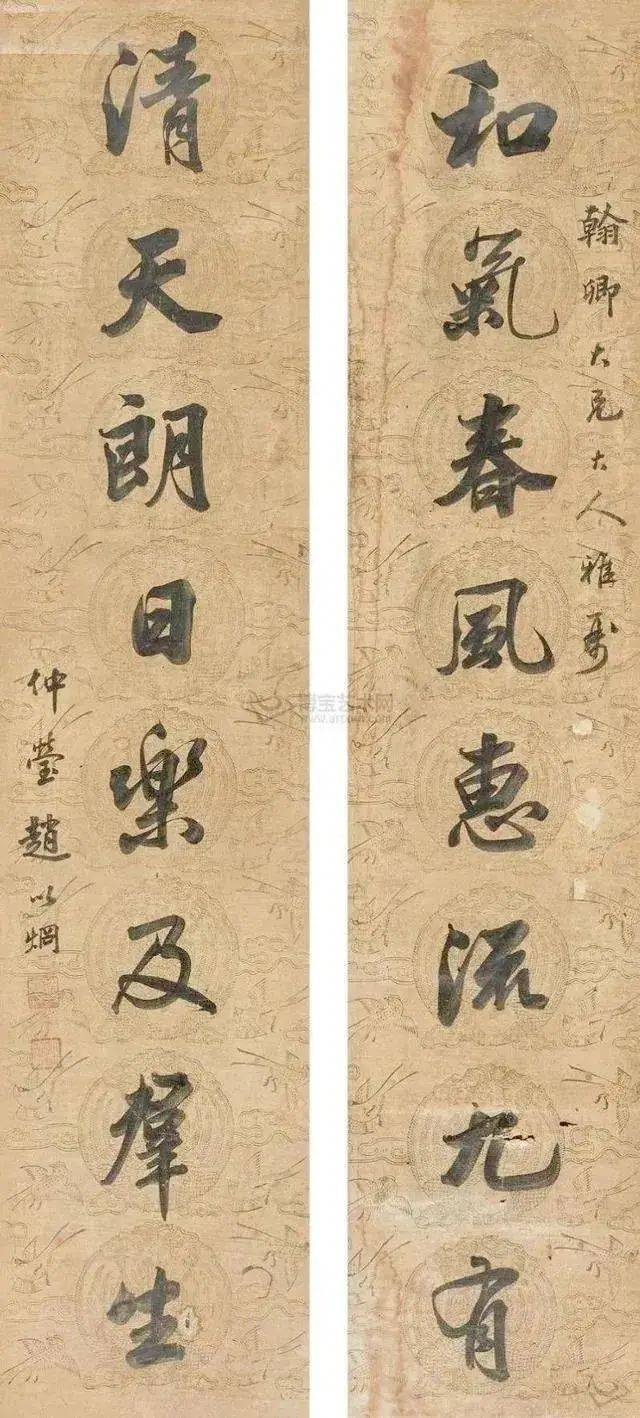 翰卿大兄大人雅属
和氣春風惠流九有
清天朗日樂及羣生
仲瑩趙以烱
博宝艺术网